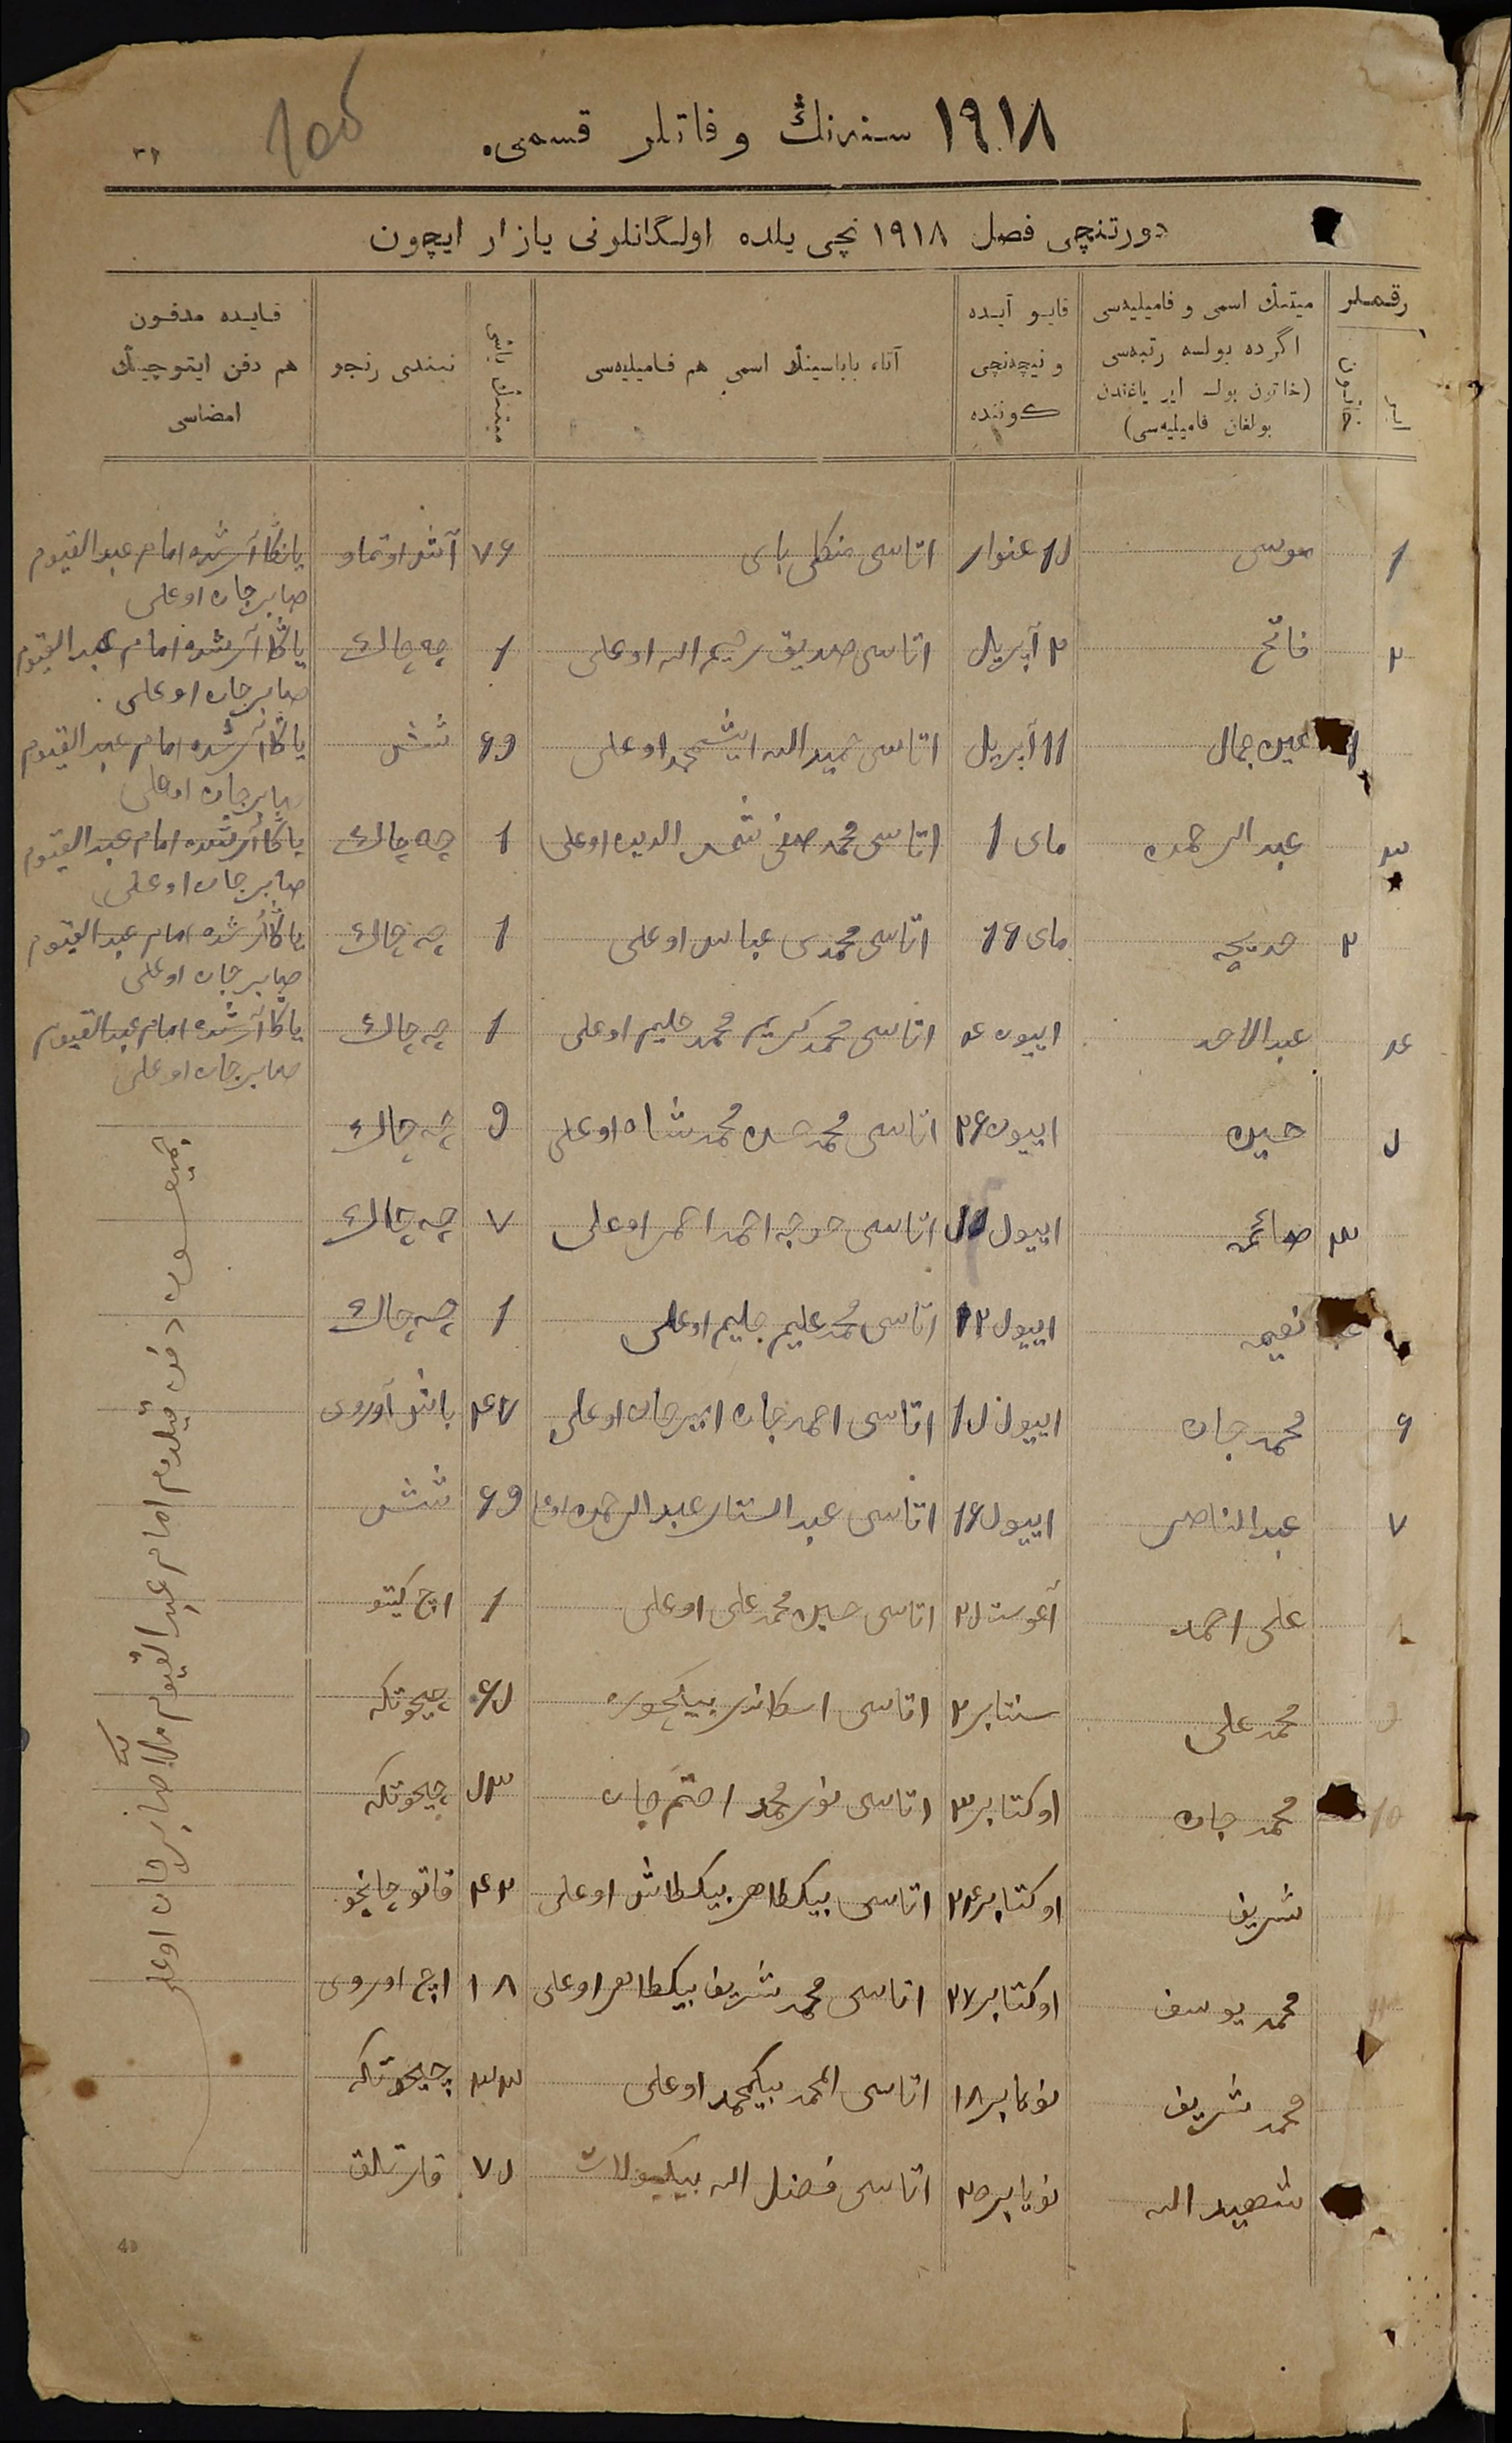 ١٩١٨ سنه‌نڭ وفاتلر قسمی.
دورتنچی فصل ١٩١٨ نچی یلده اولگانلرنی یازار ایچون
رقملر
ایر
خاتون
میتنڭ اسمی و فامیلیه‌سی
اگرده بولسه رتبه‌سی
(خاتون بولسه ایر یاغندن
بولغان فامیلیه‌سی)
قایو آیده
و نیچه‌نچی
كوننده
آتا، باباسینڭ اسمی هم فامیلیه‌سی
میتنڭ یاشی
نیندی رنجو
قایده مدفون
هم دفن ایتوچینڭ
امضاسی
١ موسی ١٥ غنوار اتاسی منکلی بای ٧٦ آش اوتماو یانگا آرشده امام عبد القیوم
صابرجان اوغلی
٢ فاتح ٢ آپریل اتاسی صدیق رحیم الله اوغلی ١ چه چاك یاڭا آرشده امام عبد القیوم
صابرجان اوغلی
١ عین جمال ١١ آپریل اتاسی حمید الله ایشمحمد اوغلی ٦٩ شش یاڭا آرشده امام عبد القیوم
صابرجان اوغلی
٣ عبد الرحمن مای ١ اتاسی محمد صفی شمس الدین اوغلی ١ چه چاك یاڭا آرشده امام عبد القیوم
صابرجان اوغلی
٢ خدیجه مای ١٦ اتاسی محمدی عباس اوغلی ١ چه چاك یاڭا آرشده امام عبد القیوم
صابرجان اوغلی
٤ عبد الاحد اییون ٤ اتاسی محمد کریم محمد حلیم اوغلی ١ چه چاك یاڭا آرشده امام عبد القیوم
صابرجان اوغلی
٥ حسین اییون ٢٦ اتاسی محمد حسن محمد شاه اوغلی ٩ چه چاك
٣ صائمه اییول اتاسی خوجه احمد احمر اوغلی ٧ چه چاك
نعیمه اییول ١٢ اتاسی محمد علیم حلیم اوغلی ١ چه چاك
٦ محمد جان اییول ١٥ اتاسی احمد جان امیرجان اوغلی ٤٧ باش آوروی
٧ عبد الناصر اییول ١٦ اتاسی عبد الستار عبد الرحمن اوغلی ٦٩ شش
٨ علی احمد آغوست ٢٥ اتاسی حسین محمد علی اوغلی ١ اچ کیتو
٩ محمد علی سنتابر ٢ اتاسی اسکاندر بیکچوره ٦٥ چیحوتکه
١٠ محمد جان اوکتابر ٣ اتاسی نور محمد احتم جان ٥٣ چیحوتکه
شریف اوکتابر ٢٤ اتاسی بیکطاهر بیکطاش اوغلی ٤٢ قاتو چانچو
محمد یوسف اوکتابر ٢٧ اتاسی محمد شریف بیکطاهر اوغلی ١٨ اچ اوروی
محمد شریف نویابر ١٨ اتاسی المحمد بیکمحمد اوغلی ٣٣ چیحوتکه
شهید الله نویابر ٢٥ اتاسی فضل الله بیکبولات ٧٥ قارتلق
دفن قیلدم امام عبد القیوم ملا صابرجان اوغلی